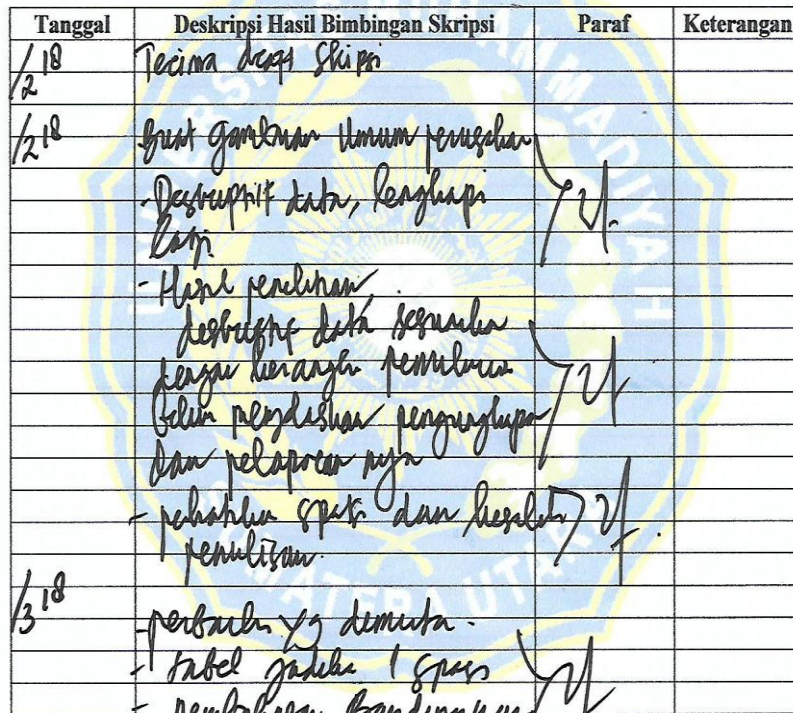 Tanggal Deskripsi Hasil Bimbingan Skripsi Paraf Keterangan
/2 18 Terima draft Skripsi
/2 18 Buat gambaran Umum perusahaan
- Deskriptif data, lengkapi
lagi
- Hasil penelitian,
deskriptif data sesuaikan
dengan kerangka pemikiran
Belum menjelaskan pengungkapan
dan pelaporan nya
- perhatikan spasi dan kesalahan
penulisan.
/3 18
- perbaiki yg diminta.
- tabel jadikan 1 spasi
- pembahasan
SUMATERA UTARA